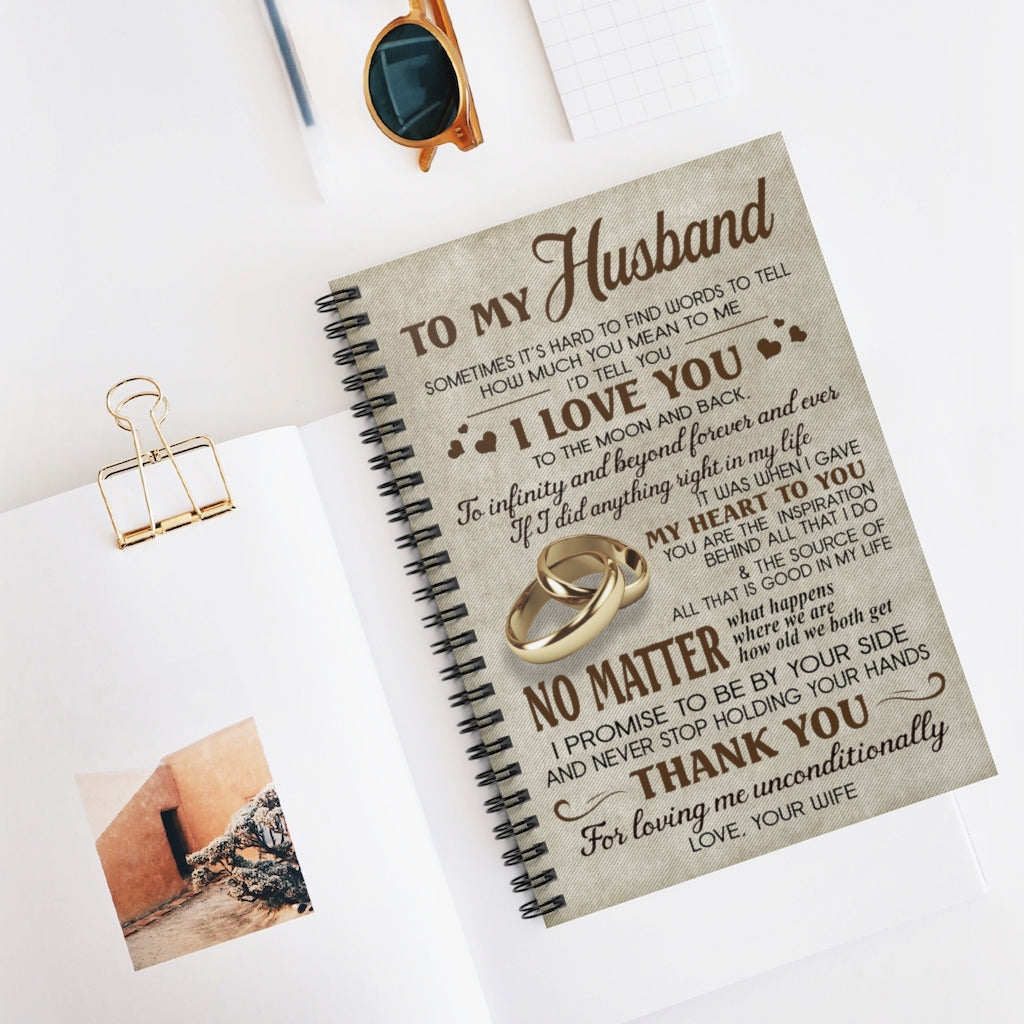 TO MY Husband
SOMETIMES IT'S HARD TO FIND WORDS TO TELL
HOW MUCH YOU MEAN TO ME
I'D TELL YOU
I LOVE YOU
TO THE MOON AND BACK.
To infinity and beyond forever and ever
If I did anything right in my life
IT WAS WHEN I GAVE
MY HEART TO YOU
YOU ARE THE INSPIRATION
BEHIND ALL THAT I DO
& THE SOURCE OF
ALL THAT IS GOOD IN MY LIFE
NO MATTER
what happens
where we are
how old we both get
I PROMISE TO BE BY YOUR SIDE
AND NEVER STOP HOLDING YOUR HANDS
THANK YOU
For loving me unconditionally
LOVE, YOUR WIFE